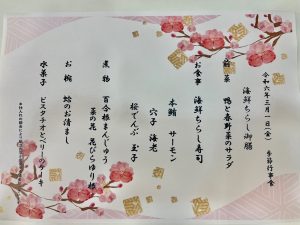 令和六年三月一日(金) 季節行事食
海鮮ちらし御膳
前菜 鴨と春野菜のサラダ
お食事 海鮮ちらし寿司
本鮪 サーモン
穴子 海老
桜でんぶ 玉子
煮物 百合根まんじゅう
菜の花 花びらゆり根
お椀 蛤のお清まし
水菓子 ピスタチオとベリーのケーキ